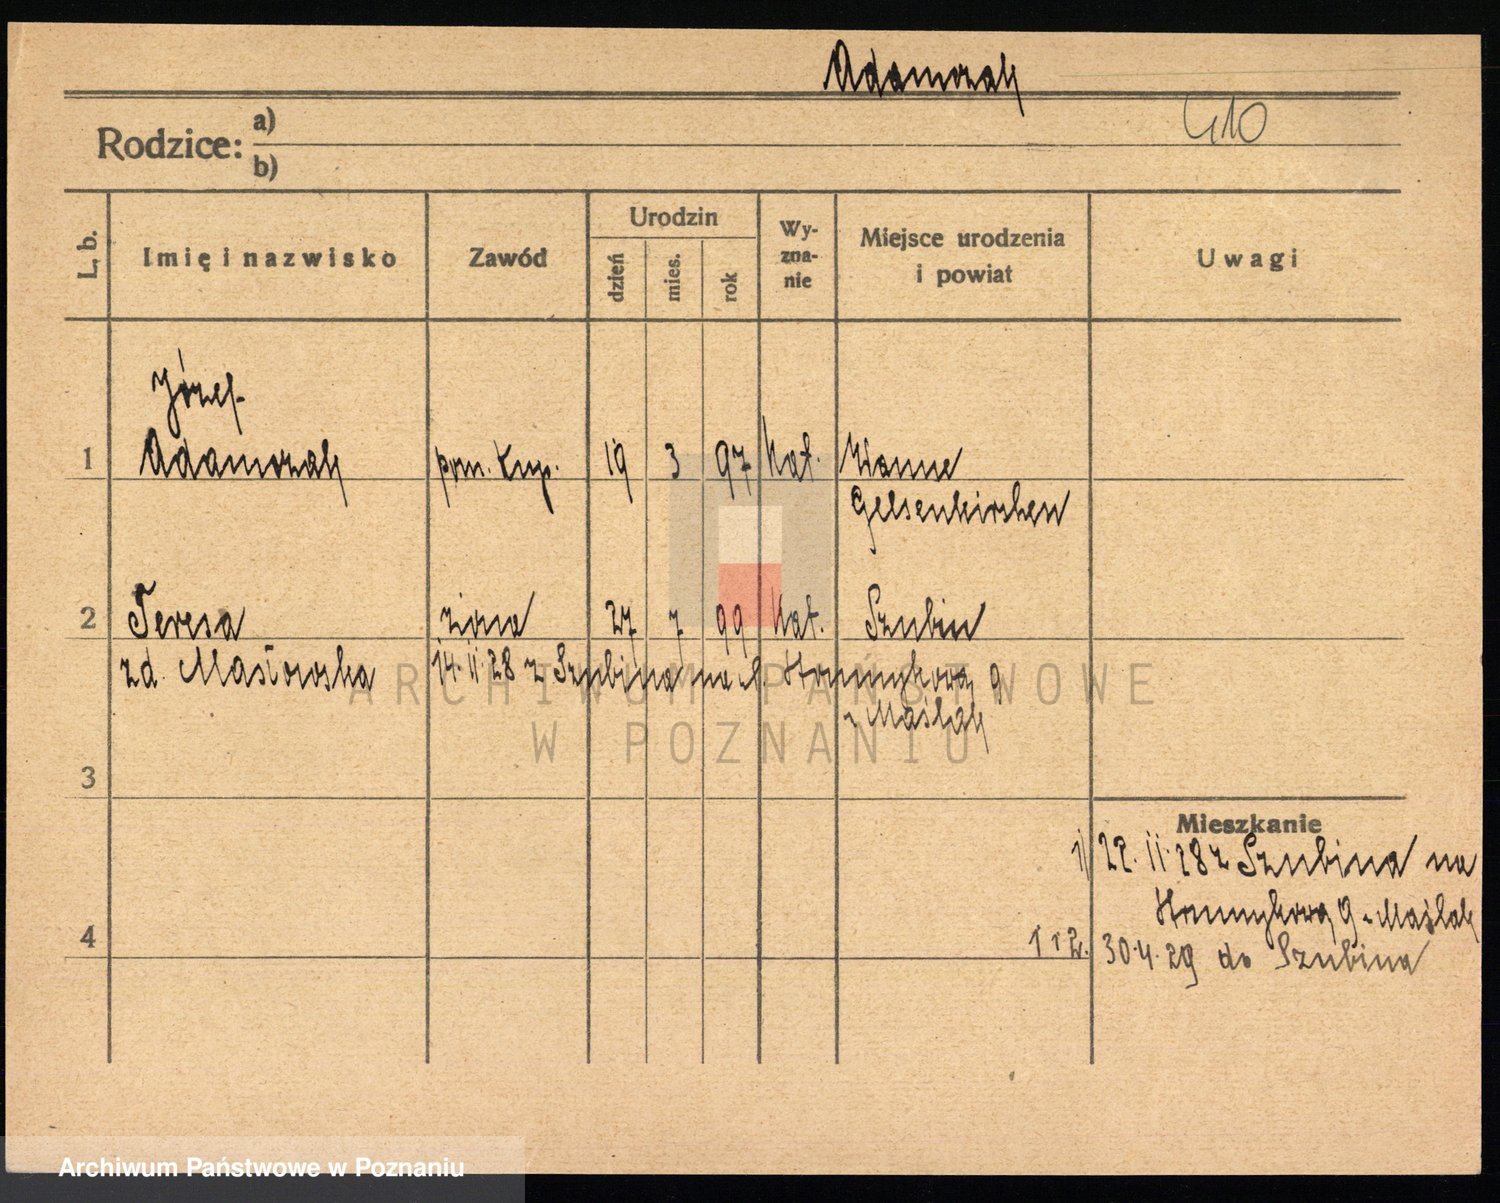 Adamczak
410
Rodzice: a)
b)
L. b.
Imię i nazwisko
Zawód
Urodzin
dzień
mies.
rok
Wy-
zna-
nie
Miejsce urodzenia
i powiat
Uwagi
Józef
1 Adamczak pom. kup. 19 3 97 kat. Wanne
Gelsenkirchen
2 Teresa żona 27 7 99 kat. Szubin
zd. Masłowska 14.II.28 z Szubina na
9
z Maślak
3
Mieszkanie
1) 22.II.28 z Szubina na
9 z Maślak
4
1 i 2. 30.4.29 do Szubina
ARCHIWUM PAŃSTWOWE
W POZNANIU
Archiwum Państwowe w Poznaniu